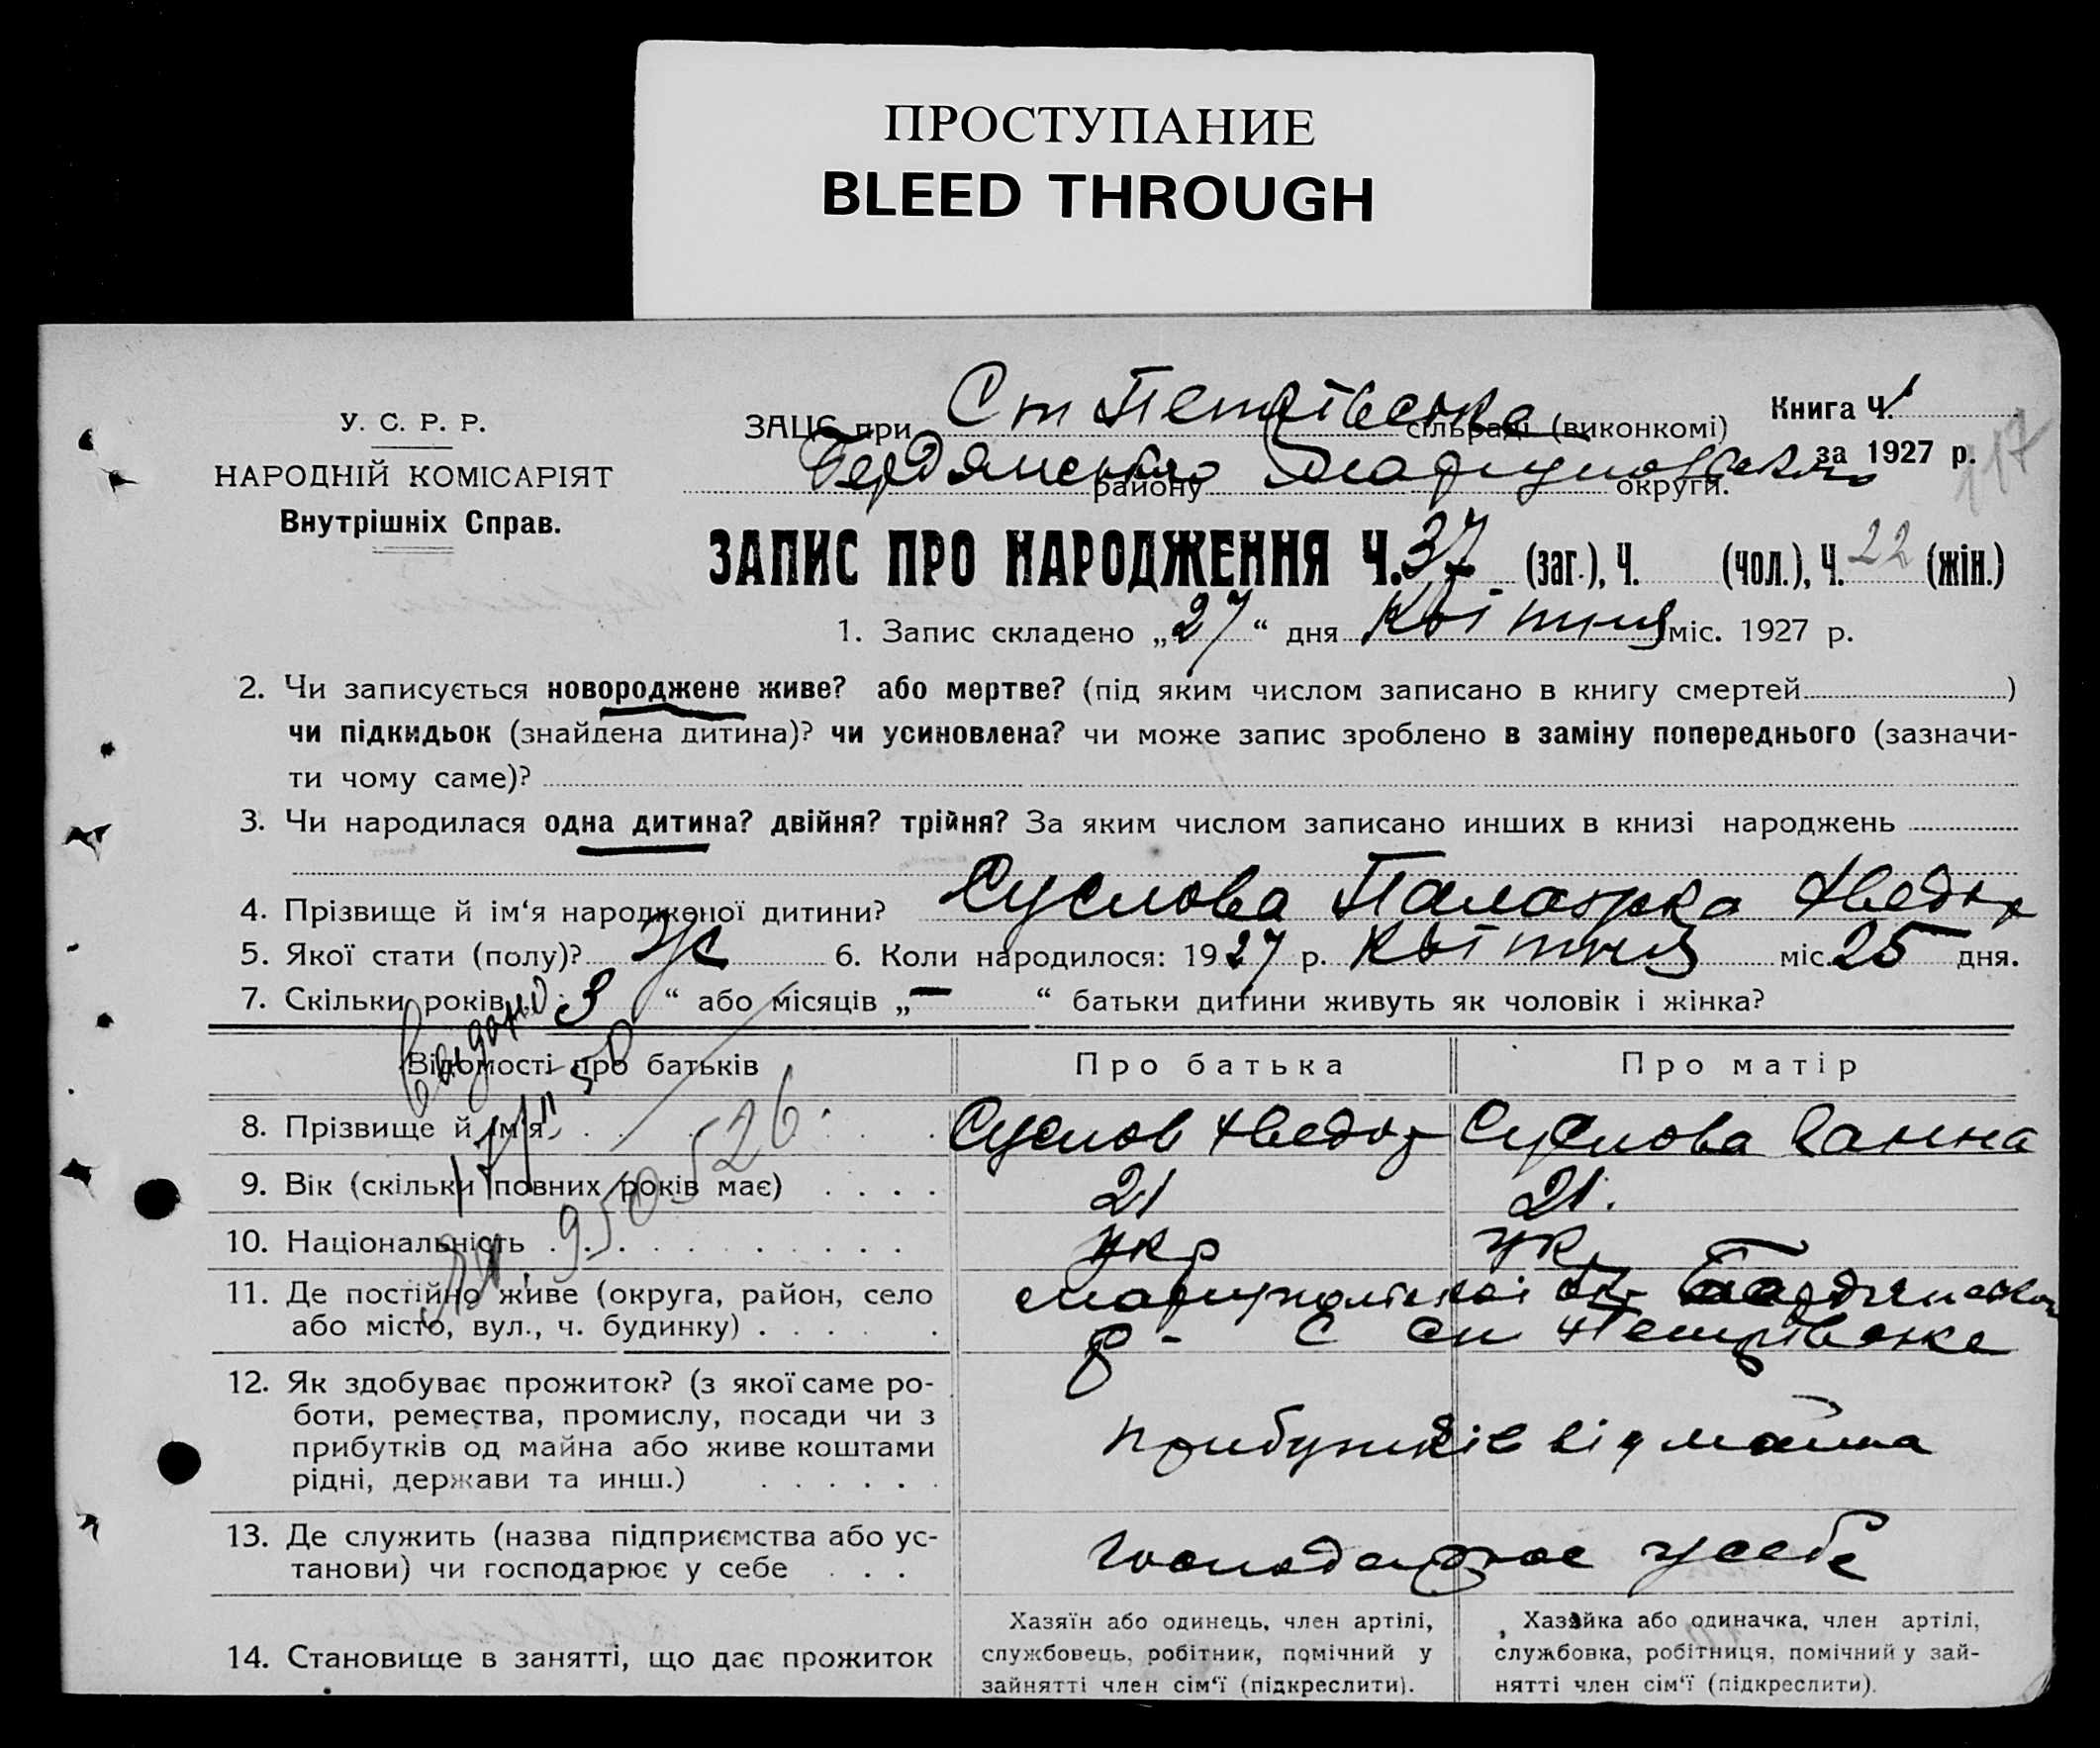 ПРОСТУПАНИЕ
BLEED THROUGH
У. С. Р. Р.
НАРОДНІЙ КОМІСАРІЯТ
Внутрішніх Справ.
Книга Ч. 1
за 1927 р.
117
ЗАЦС при Ст Петрівська сільраді (виконкомі)
Бердянського району Маріупольсько округи.
ЗАПИС ПРО НАРОДЖЕННЯ Ч. 37 (заг.), Ч. (чол.), Ч. 22 (жін.)
1. Запис складено „27“ дня Квітня міс. 1927 р.
2. Чи записується новороджене живе? або мертве? (під яким числом записано в книгу смертей )
чи підкидьок (знайдена дитина)? чи усиновлена? чи може запис зроблено в заміну попереднього (зазначи-
ти чому саме)?
3. Чи народилася одна дитина? двійня? трійня? За яким числом записано инших в книзі народжень
4. Прізвище й ім‘я народженої дитини? Суслова Палажка Хведор
5. Якої стати (полу)? Ж 6. Коли народилося: 1927 р. Квітня міс. 25 дня.
7. Скільки років „3“ або місяців „—“ батьки дитини живуть як чоловік і жінка?
Відомості про батьків Про батька Про матір
8. Прізвище й ім‘я Суслов Хведор Суслова Ганна
9. Вік (скільки повних років має) 21 21.
10. Національність укр укр
11. Де постійно живе (округа, район, село Маріупольської ок. Бердянсько
або місто, вул., ч. будинку) р- с ст Петрівська
12. Як здобуває прожиток? (з якої саме ро-
боти, ремества, промислу, посади чи з прибутків від майна
прибутків од майна або живе коштами
рідні, держави та инш.)
13. Де служить (назва підприємства або ус- господарює у себе
танови) чи господарює у себе
14. Становище в занятті, що дає прожиток
Хазяїн або одинець, член артілі,
службовець, робітник, помічний у
зайнятті член сім‘ї (підкреслити).
Хазяйка або одиначка, член артілі,
службовка, робітниця, помічний у зай-
нятті член сім‘ї (підкреслити).
Видано
950526